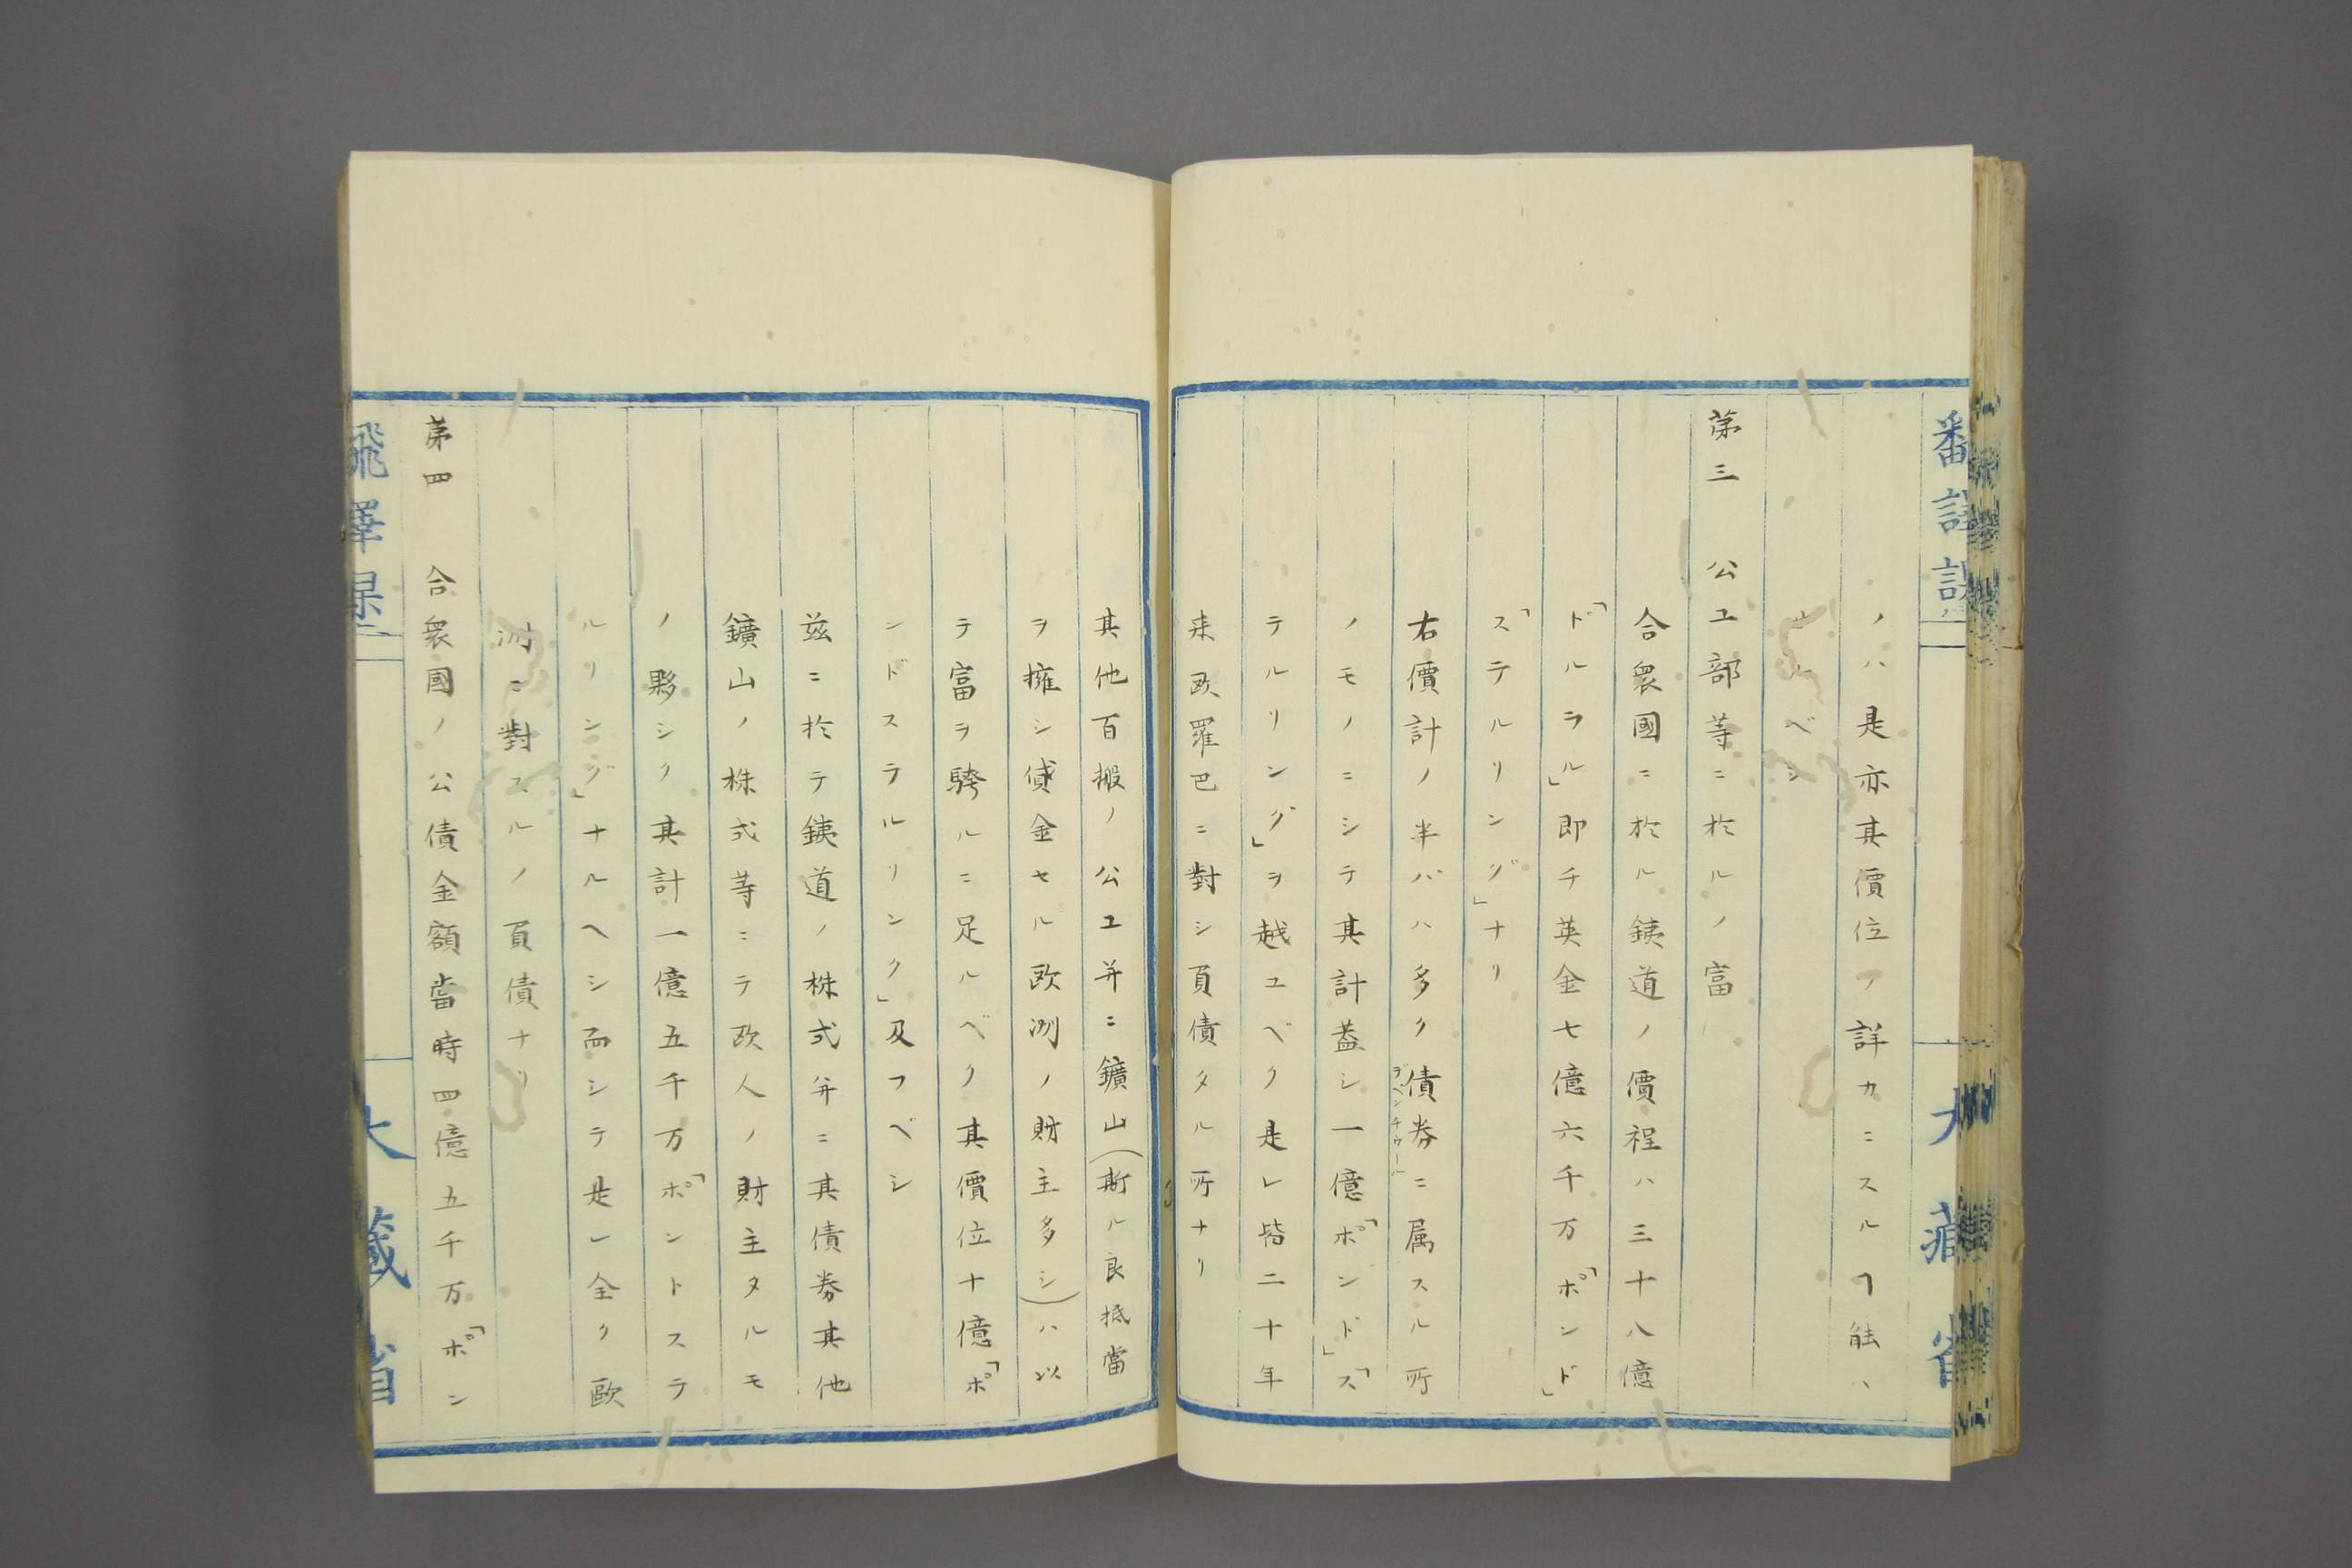 ノハ是亦其價位ヲ詳カニスルヿ能ハ
ルベシ
第三 公工部等ニ於ルノ富
合衆國ニ於ル銕道ノ價程ハ三十八億
「ドルラル」即チ英金七億六千万「ポンド」
「ステルリング」ナリ
右價計ノ半バハ多ク債券ニ属スル所
デベンチゥール
ノモノニシテ其計蓋シ一億「ポンド」「ス
テルリング」ヲ越ユベク是レ皆二十年
来欧羅巴ニ對シ負債タル所ナリ
其他百搬ノ公工并ニ鑛山(斯ル良抵當
ヲ擁シ貸金セル欧洲ノ財主多シ)ハ以
テ富ヲ騁ルニ足ルベク其價位十億「ポ
ンドステルリンク」及フベシ
茲ニ於テ銕道ノ株式并ニ其債券其他
鑛山ノ株式等ニテ欧人ノ財主タルモ
ノ夥シク其計一億五千万「ポントステ
ルリング」ナルヘシ而シテ是レ全ク歐
洲ニ對スルノ負債ナリ
第四 合衆國ノ公債金額當時四億五千万「ポン
大藏省